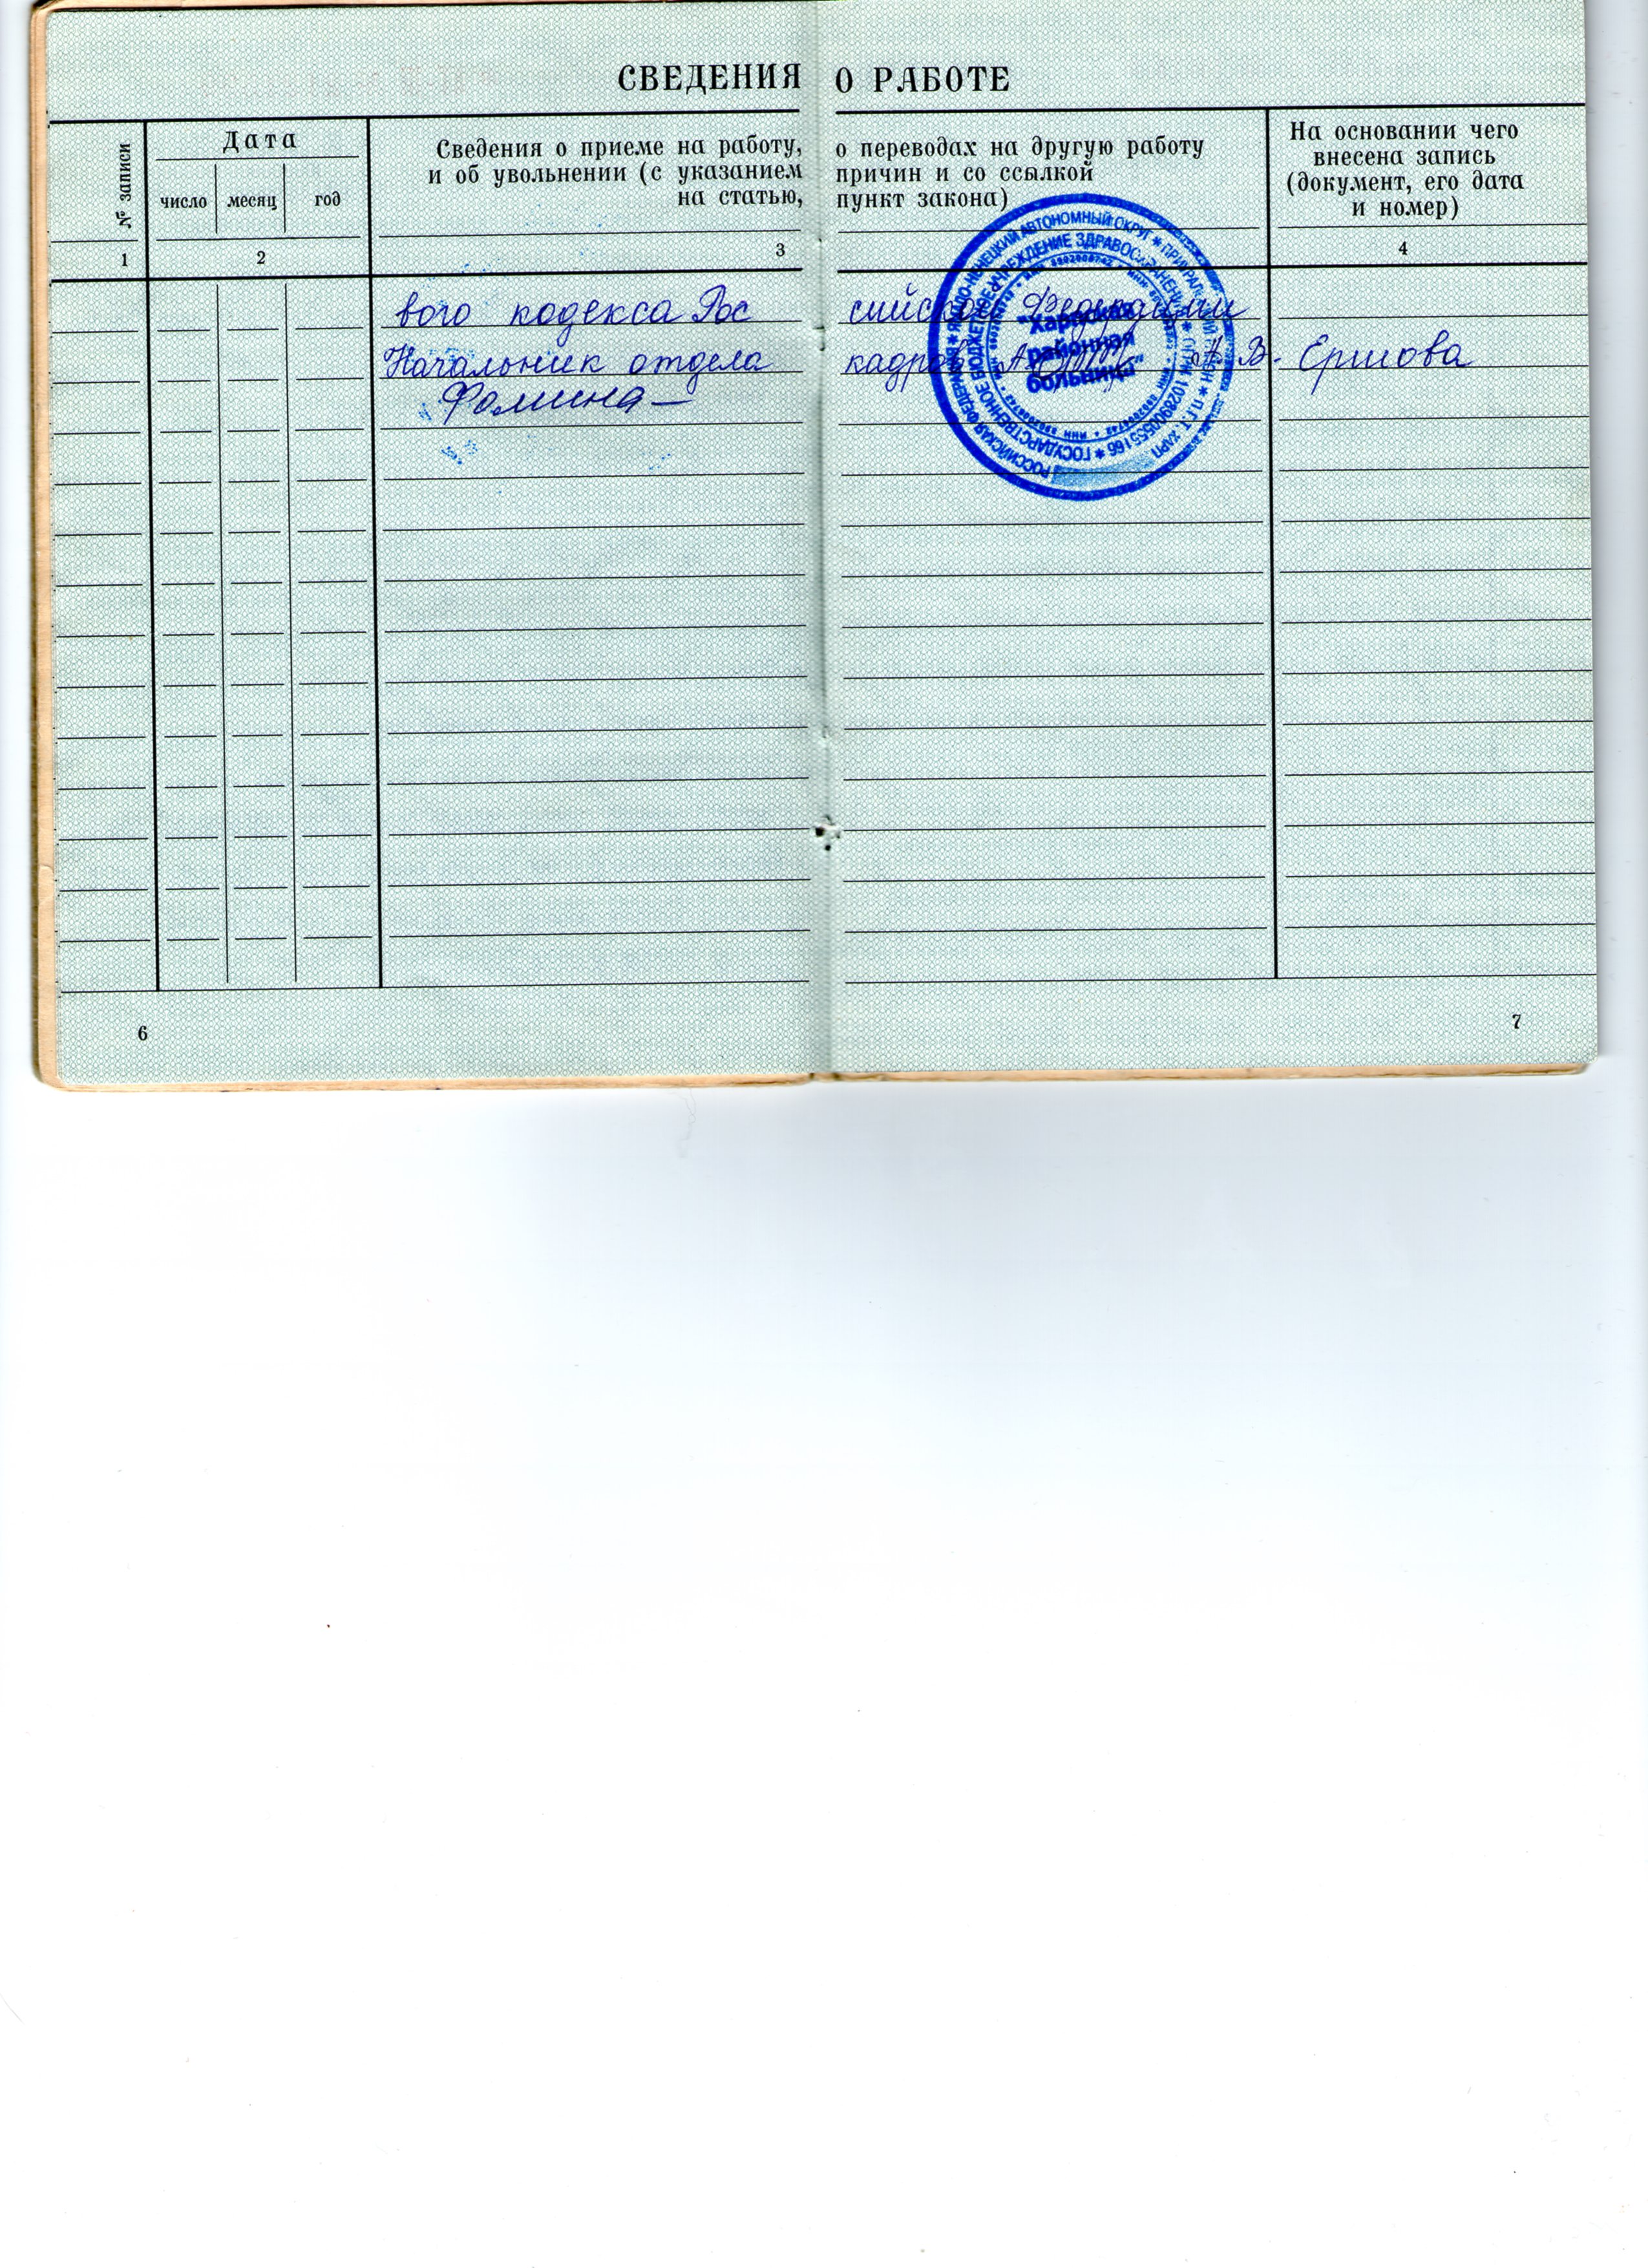 СВЕДЕНИЯ О РАБОТЕ
№ записи
Дата
число месяц год
Сведения о приеме на работу, о переводах на другую работу
и об увольнении (с указанием причин и со ссылкой
на статью, пункт закона)
На основании чего
внесена запись
(документ, его дата
и номер)
1 2 3 4
вого кодекса Рос сийской Федерации
Начальник отдела кадров А. В. Ершова
Фомина
РОССИЙСКАЯ ФЕДЕРАЦИЯ * ЯМАЛО-НЕНЕЦКИЙ АВТОНОМНЫЙ ОКРУГ * ПРИУРАЛЬСКИЙ РАЙОН * П.Г.Т. ХАРП
ГОСУДАРСТВЕННОЕ БЮДЖЕТНОЕ УЧРЕЖДЕНИЕ ЗДРАВООХРАНЕНИЯ * ОГРН 1028900555166 *
"Харпская
районная
больница"
6 7